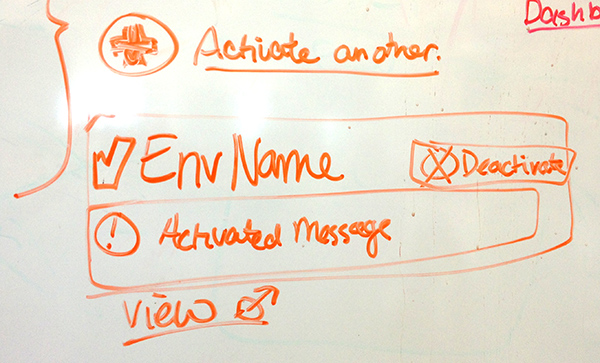 Dashb
Activate another.
Env Name
Deactivate
! Activated Message
View